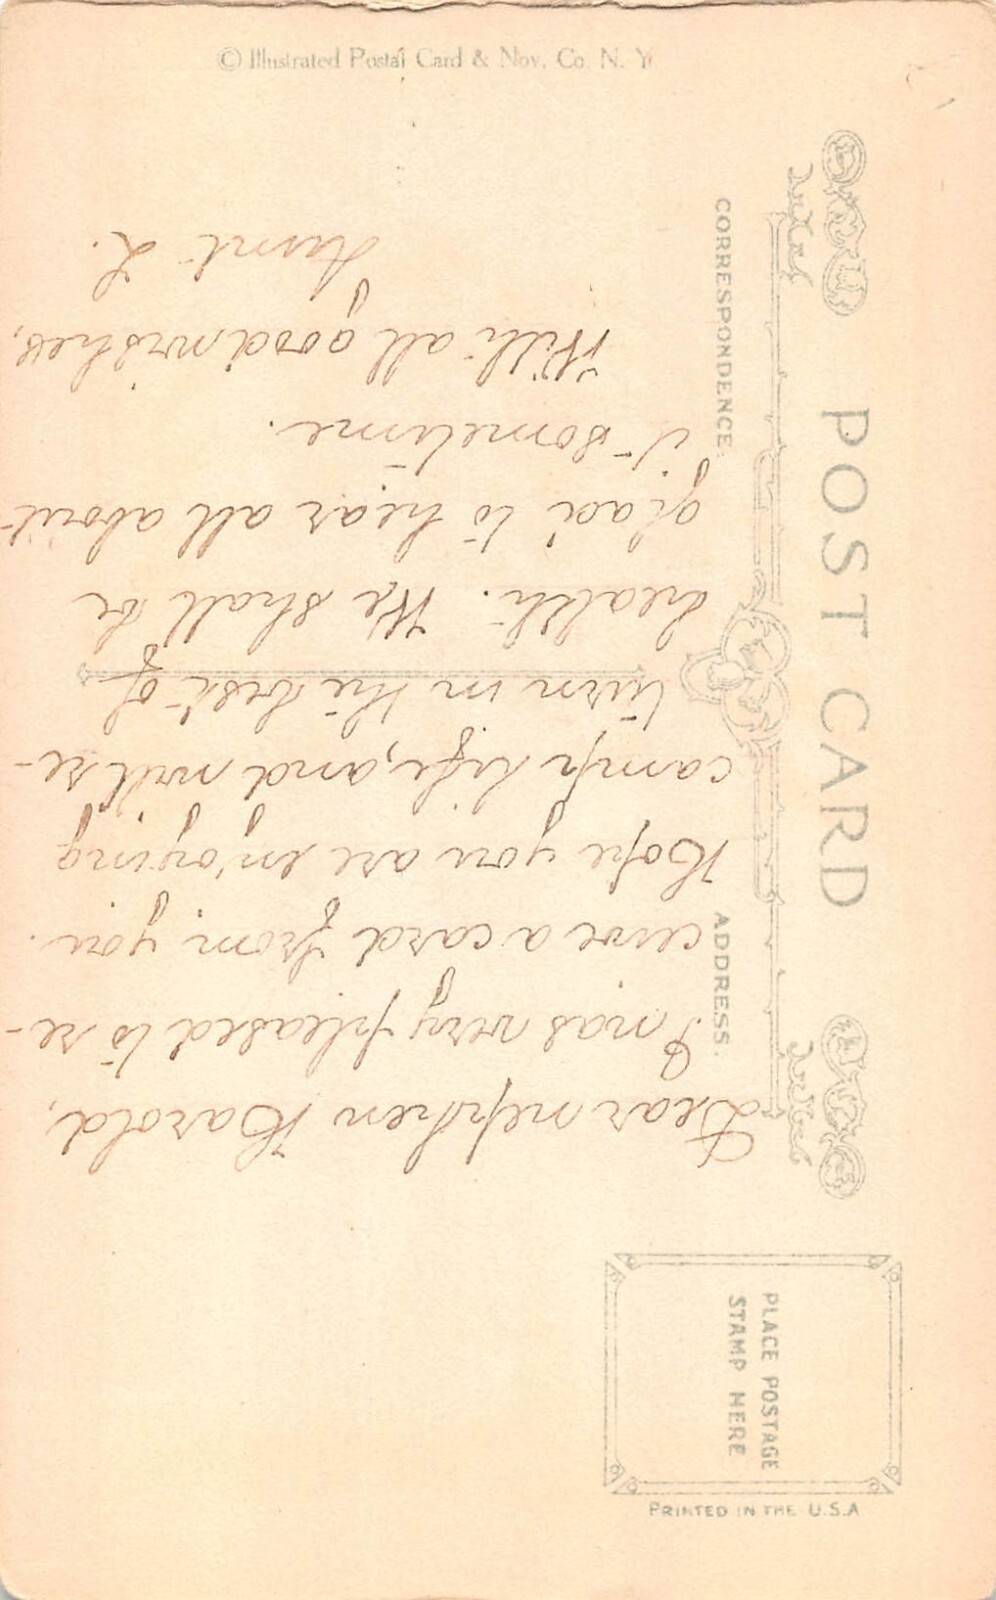 © Illustrated Postal Card & Nov. Co. N. Y.
POST CARD
CORRESPONDENCE.
ADDRESS.
PLACE POSTAGE
STAMP HERE
PRINTED IN THE U.S.A
Dear nephew Harold,
I was very pleased to re-
ceive a card from you.
Hope you are enjoying
camp life, and will re-
turn in the best of
health. We shall be
glad to hear all about
it sometime.
With all good wishes,
Aunt L.